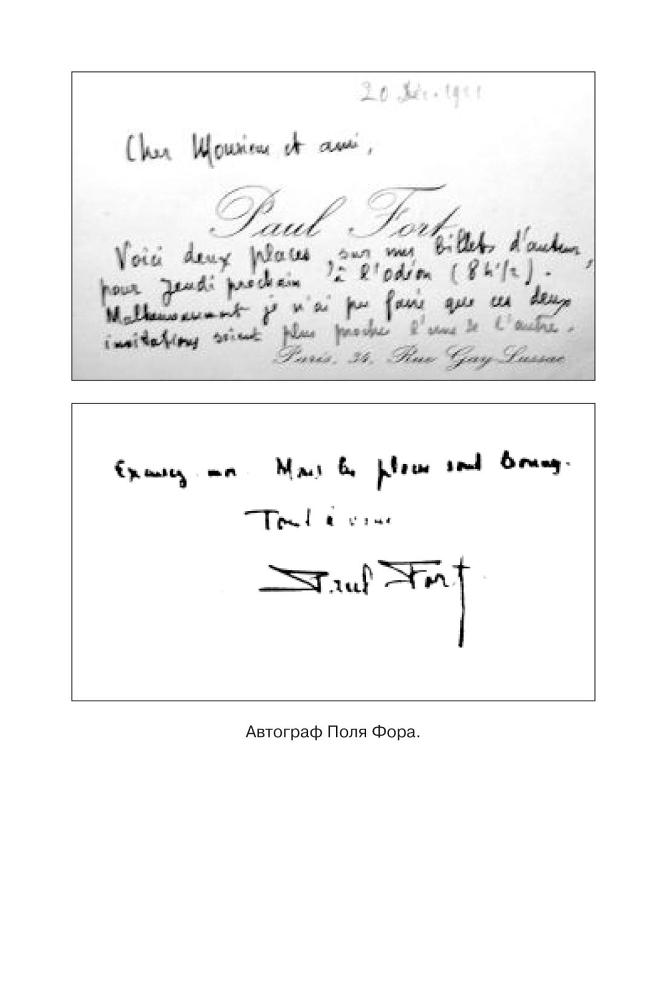 20 Déc. 1921
Cher Monsieur et ami,
Paul Fort
Voici deux places, sur mes billets d'auteur,
pour Jeudi prochain, à l'Odéon (8 h 1/2).
Malheureusement je n'ai pu faire que ces deux
invitations soient plus proches l'une de l'autre.
Paris, 34, Rue Gay-Lussac
Excusez-moi. Mais les places sont bonnes.
Tout à vous
Paul Fort
Автограф Поля Фора.